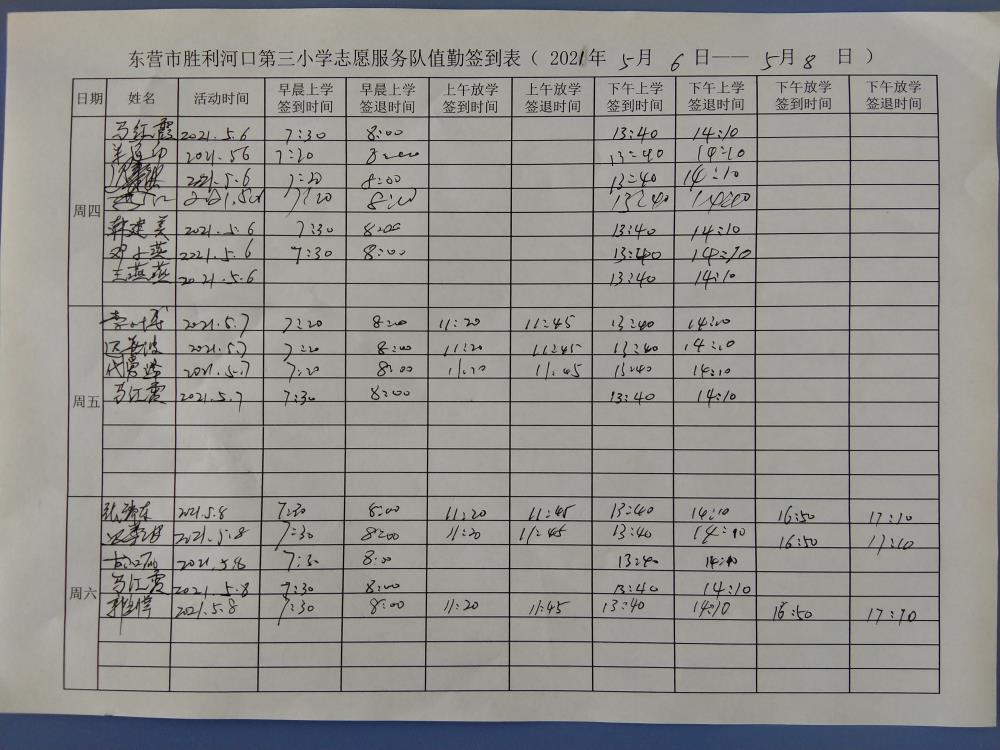 东营市胜利河口第三小学志愿服务队值勤签到表（ 2021年 5月 6 日—— 5月 8 日 ）
日期 姓名 活动时间 早晨上学签到时间 早晨上学签退时间 上午放学签到时间 上午放学签退时间 下午上学签到时间 下午上学签退时间 下午放学签到时间 下午放学签退时间
周四
马红霞 2021.5.6 7:30 8:00 13:40 14:10
2021.5.6 7:20 13:40 14:10
2021.5.6 7:20 8:00 13:40 14:10
7:20 8:00 13:40
韩建美 2021.5.6 7:30 8:00 13:40 14:10
邓小燕 2021.5.6 7:30 8:00 13:40 14:10
王燕燕 2021.5.6 13:40 14:10
周五
2021.5.7 7:20 8:00 11:20 11:45 13:40 14:10
2021.5.7 7:20 8:00 11:20 11:45 13:40 14:10
2021.5.7 7:20 8:00 11:20 11:45 13:40 14:10
马红霞 2021.5.7 7:30 8:00 13:40 14:10
周六
2021.5.8 7:30 8:00 11:20 11:45 13:40 14:10 16:50 17:10
2021.5.8 7:30 8:00 11:20 11:45 13:40 14:10 16:50 17:10
2021.5.8 7:30 8:00 13:40 14:10
马红霞 2021.5.8 7:30 8:00 13:40 14:10
2021.5.8 7:30 8:00 11:20 11:45 13:40 14:10 16:50 17:10